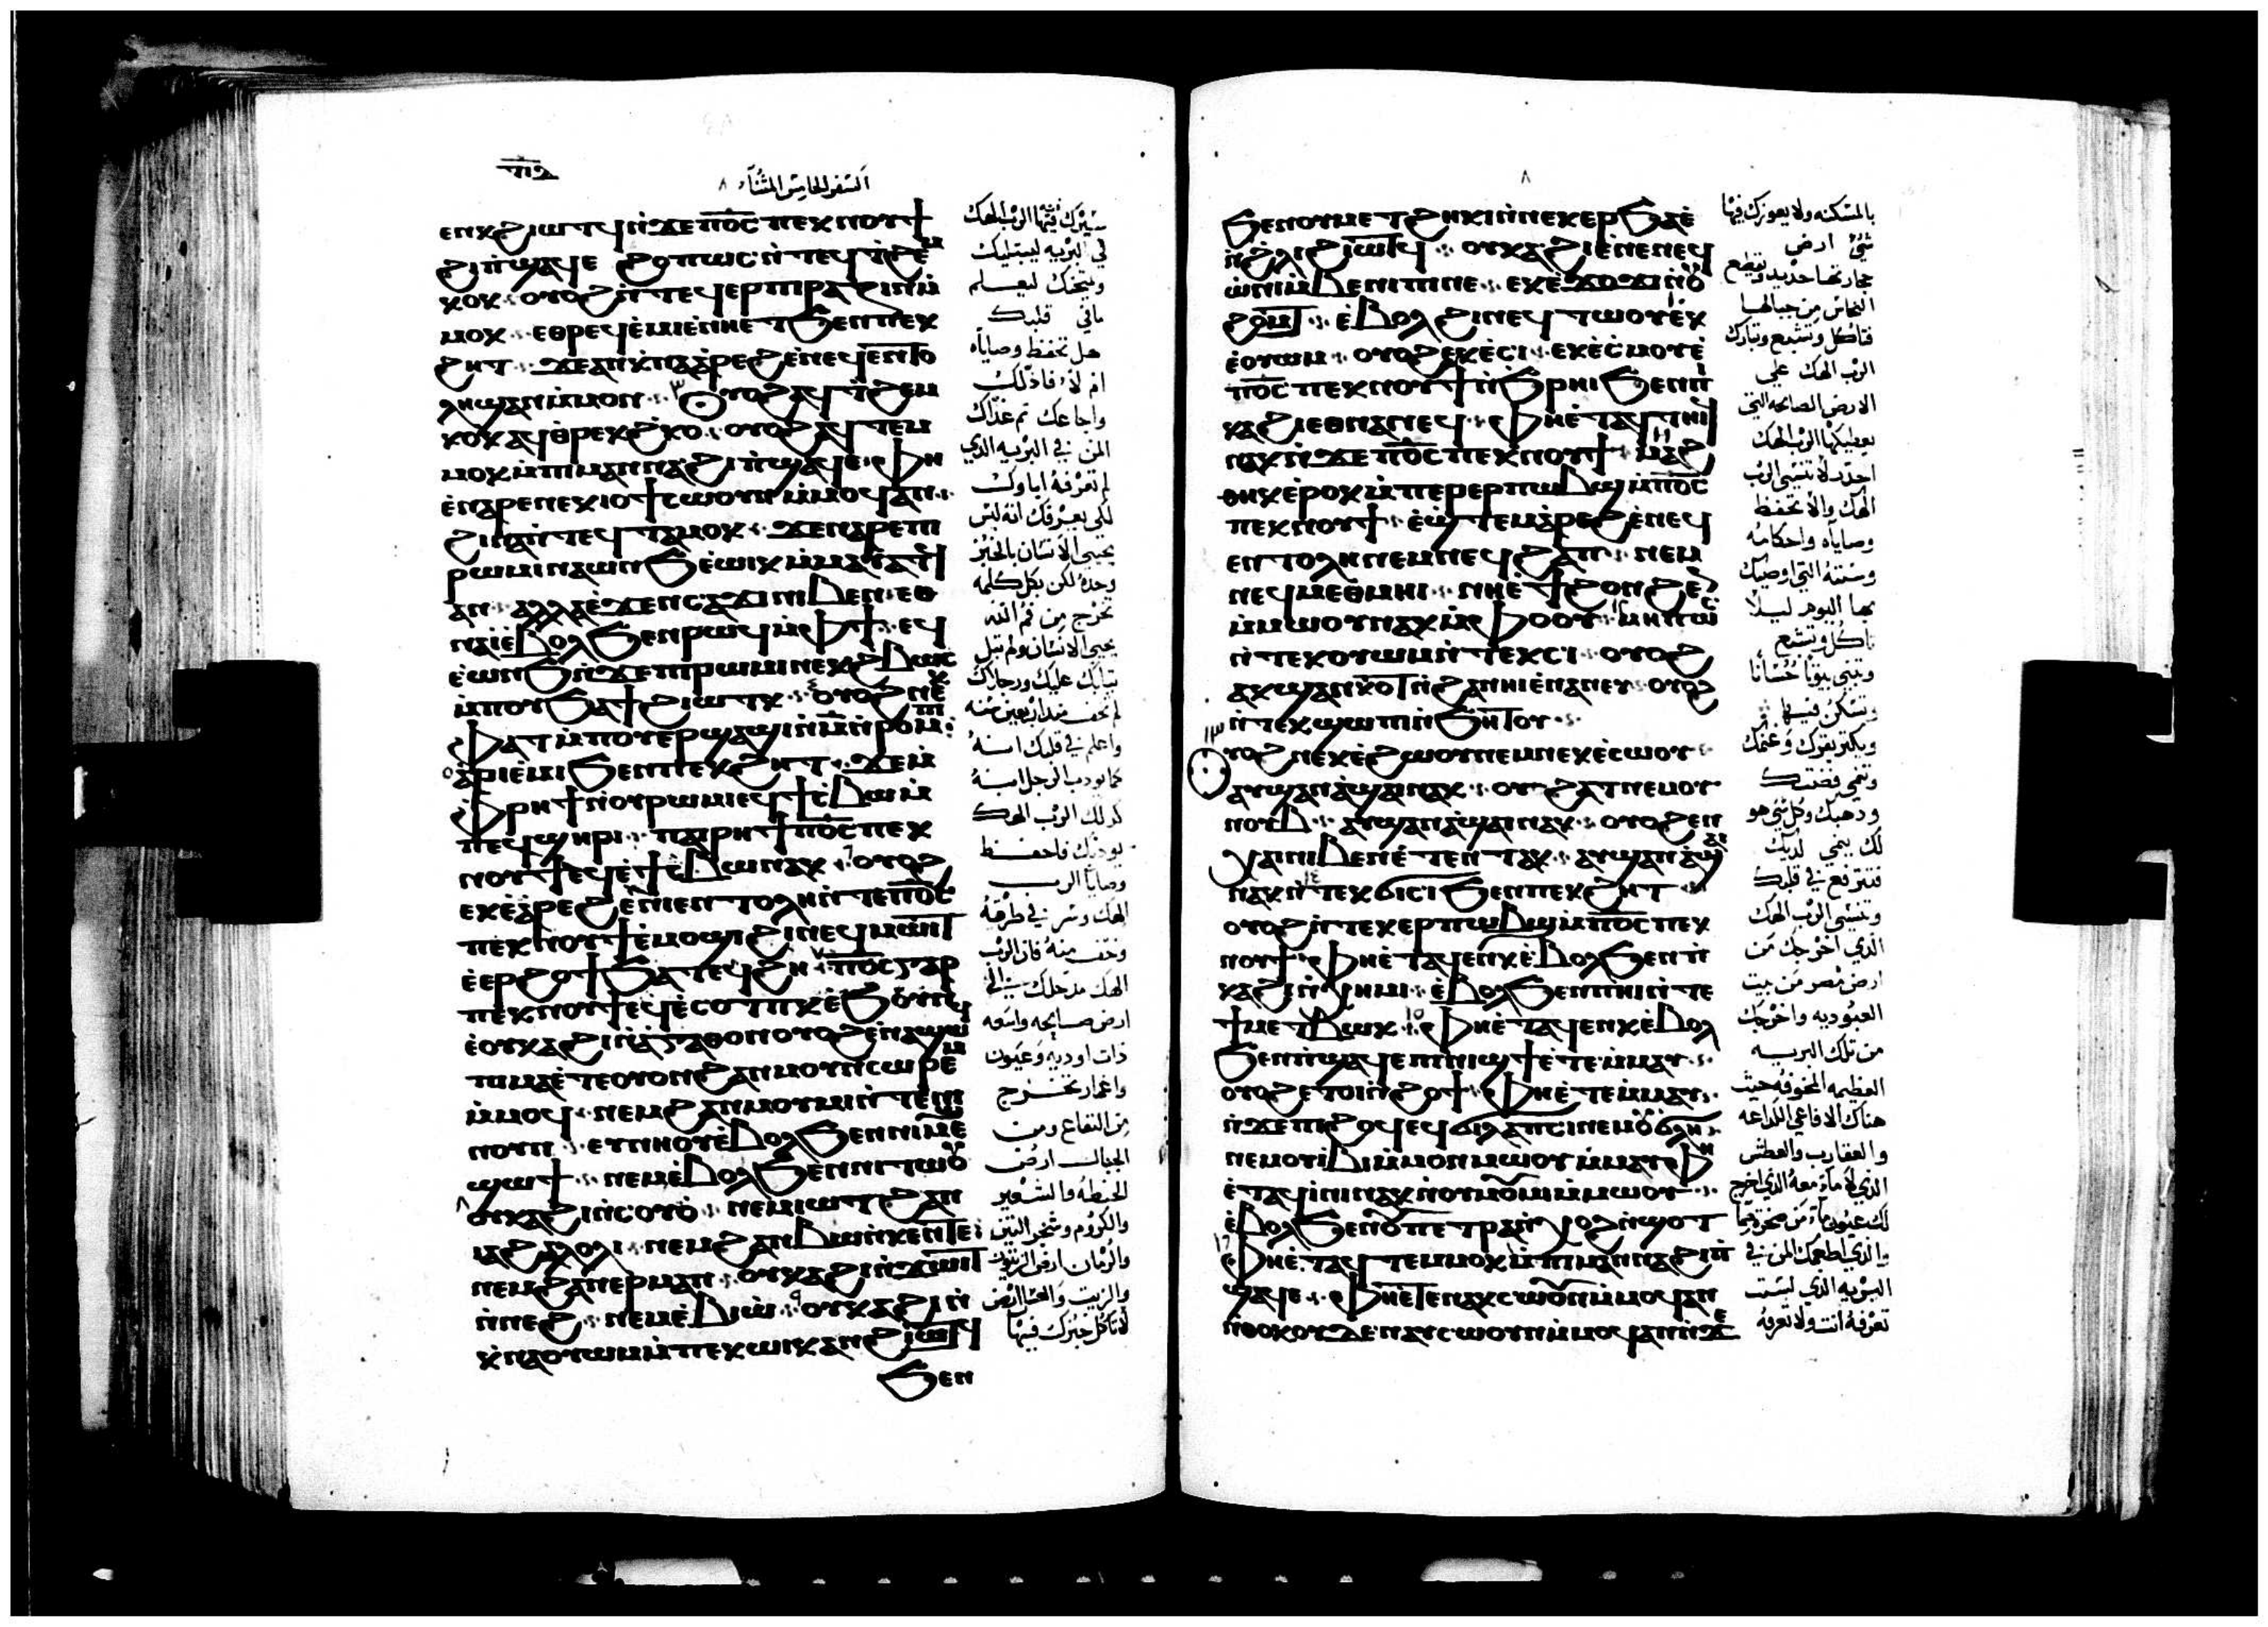 السفر الخامس المثناء ٨
ⲉⲛⲕϩⲓⲱⲧϥ ⲛ̀ϫⲉ ⲡⲟ̅ⲥ̅ ⲡⲉⲕⲛⲟⲩϯ
ϩⲓⲡ̀ϣⲁϥⲉ ϩⲟⲡⲱⲥ ⲛ̀ⲧⲉϥϯϩⲉⲙ
ⲕⲟⲕ ⲟⲩⲟϩ ⲛ̀ⲧⲉϥⲉⲣⲡⲓⲣⲁⲍⲓⲛ ⲙ̀
ⲙⲟⲕ ⲉⲑⲣⲉϥⲉ̀ⲙⲓ ⲉ̀ⲛⲏⲉⲧϧⲉⲛ ⲡⲉⲕ
ϩⲏⲧ ϫⲉ ⲁⲛ ⲕ̀ⲛⲁⲁ̀ⲣⲉϩ ⲉ̀ⲛⲉϥⲉⲛⲧⲟ
ⲗⲏ ϣⲁⲛ ⲙ̀ⲙⲟⲛ ٣ ⲟⲩⲟϩ ⲁϥϯϩⲉⲙ
ⲕⲟⲕ ⲁϥⲑⲣⲉⲕϩ̀ⲕⲟ ⲟⲩⲟϩ ⲁϥⲧⲉⲙ
ⲙⲟⲕ ⲙ̀ⲡⲓⲙⲁⲛⲛⲁ ϩⲓⲡ̀ϣⲁϥⲉ ⲫⲏ
ⲉ̀ⲛⲁⲣⲉ ⲛⲉⲕⲓⲟϯ ⲥⲱⲟⲩⲛ ⲙ̀ⲙⲟϥ ⲁⲛ
ϩⲓⲛⲁ ⲛ̀ⲧⲉϥⲧⲁⲙⲟⲕ ϫⲉ ⲛⲁⲣⲉ ⲡⲓ
ⲣⲱⲙⲓ ⲛⲁⲱⲛϧ ⲉ̀ⲱⲓⲕ ⲙ̀ⲙⲁⲩⲁⲧϥ
ⲁⲛ ⲁⲗⲗⲁ ⲉ̀ϫⲉⲛ ⲥⲁϫⲓ ⲛⲓⲃⲉⲛ ⲉⲑ
ⲛⲁⲓ̀ ⲉ̀ⲃⲟⲗϧⲉⲛ ⲣⲱϥ ⲙ̀ⲫϯ ⲉϥ
ⲉ̀ⲱⲛϧ ⲛ̀ϫⲉ ⲡⲓⲣⲱⲙⲓ ⲛⲉⲕϩⲃⲱⲥ
ⲙ̀ⲡⲟⲩϧⲁϯ ϩⲓⲱⲧⲕ ٤ ⲟⲩⲟϩ ⲛⲉⲕ
ⲫⲁⲧ ⲙ̀ⲡⲟⲩⲉⲣϣⲱϣ ⲓⲥ ⲙ̅ ⲛ̀ⲣⲟⲙⲡⲓ
٥ ⲁ̀ⲣⲓⲉ̀ⲙⲓ ϧⲉⲛ ⲡⲉⲕϩⲏⲧ ϫⲉ ⲙ̀
ⲫⲣⲏϯ ⲛ̀ⲟⲩⲣⲱⲙⲓ ⲉϥϯⲥ̀ⲃⲱ ⲙ̀
ⲡⲉϥϣⲏⲣⲓ ⲡⲁⲓⲣⲏϯ ⲡⲟ̅ⲥ̅ ⲡⲉⲕ
ⲛⲟⲩϯ ⲉϥⲉ̀ϯⲥ̀ⲃⲱ ⲛⲁⲕ ٦ ⲟⲩⲟϩ
ⲉⲕⲉ̀ⲁ̀ⲣⲉϩ ⲉ̀ⲛⲓⲉⲛⲧⲟⲗⲏ ⲛ̀ⲧⲉ ⲡⲟ̅ⲥ̅
ⲡⲉⲕⲛⲟⲩϯ ⲉ̀ⲙⲟϣⲓ ϩⲓ ⲛⲉϥⲙⲱⲓⲧ
ⲉ̀ⲉⲣϩⲟϯ ϧⲁⲧⲉϥϩⲏ ٧ ⲡⲟ̅ⲥ̅ ⲅⲁⲣ
ⲡⲉⲕⲛⲟⲩϯ ⲉϥⲉ̀ⲥⲟⲡⲕ ⲉ̀ϧⲟⲩⲛ
ⲉ̀ⲟⲩⲕⲁϩⲓ ⲛ̀ⲁ̀ⲅⲁⲑⲟⲛ ⲟⲩⲟϩ ⲉ̀ⲛⲁϣⲱϥ
ⲡⲓⲙⲁ ⲉ̀ⲧⲉ ⲟⲩⲟⲛ ϩⲁⲛⲙⲟⲩⲛⲥⲱⲣⲉⲙ
ⲙ̀ⲙⲟϥ ⲛⲉⲙ ϩⲁⲛⲙⲟⲩⲙⲓ ⲛ̀ⲧⲉ ⲛⲓ
ⲛⲟⲩⲛ ⲉⲩⲛⲏⲟⲩ ⲉ̀ⲃⲟⲗϧⲉⲛ ⲛⲓⲙⲉ
ϣϣⲟϯ ⲛⲉⲙ ⲉ̀ⲃⲟⲗϧⲉⲛ ⲛⲓⲧⲱⲟⲩ
٨ ⲟⲩⲕⲁϩⲓ ⲛ̀ⲥⲟⲩⲟ̀ ⲛⲉⲙ ⲓⲱⲧ ϩⲁⲛ
ⲓⲁϩⲁⲗⲟⲗⲓ ⲛⲉⲙ ϩⲁⲛⲃⲱ ⲛ̀ⲕⲉⲛⲧⲉ
ⲛⲉⲙ ϩⲁⲛⲉⲣⲙⲁⲛ ⲟⲩⲕⲁϩⲓ ⲛ̀ϫⲱⲓⲧ
ⲛ̀ⲛⲉϩ ⲛⲉⲙ ⲉ̀ⲃⲓⲱ̀ ٩ ⲟⲩⲕⲁϩⲓ ⲛ̀
ⲭ̀ⲛⲁⲟⲩⲱⲙ ⲙ̀ⲡⲉⲕⲱⲓⲕ ⲁⲛ ϩⲓⲱⲧϥ
ϧⲉⲛ
سيرك فيها الرب الهك
في البريه ليبتليك
ويمتحنك ليعلم
مافي قلبك
هل تحفظ وصاياه
ام لا، فاذلك
واجاعك ثم غذاك
المن في البريه الذي
لم تعرفه اباوك
لكي يعرفك انه ليس
يحيي الانسان بالخبز
وحده لكن بكل كلمه
تخرج من فم الله
يحيي الانسان ولم تبل
ثيابك عليك ورجلاك
لم تحف منذ اربعين سنه
واعلم في قلبك انه
كما يودب الرجل ابنه
كذلك الرب الهك
يودبك فاحفظ
وصايا الرب
الهك وسر في طرقه
وخف منه فان الرب
الهك مدخلك الي
ارض صالحه واسعه
ذات اوديه وعيون
واغمار تخرج
من البقاع ومن
الجبال ارض
الحنطه والشعير
والكروم وشجر التين
والرمان ارض الزيتون
والزيت والعسل ارض
لا تاكل خبزك فيها
٨
ϧⲉⲛ ⲟⲩⲙⲉⲧϩⲏⲕⲓ ⲛ̀ⲛⲉⲕⲉⲣϧⲁⲉ̀
ⲛ̀ϩ̀ⲗⲓ ϩⲓⲱⲧϥ ⲟⲩⲕⲁϩⲓ ⲉ̀ⲛⲉⲛⲉϥ
ⲱ̀ⲛⲓ ϩⲁⲛⲃⲉⲛⲓⲡⲓ ⲛⲉ ⲉⲕⲉ̀ϫⲱϫⲓ ⲛ̀ⲟⲩ
ϩⲟⲙⲧ ⲉ̀ⲃⲟⲗ ϩⲓ ⲛⲉϥⲧⲱⲟⲩ ١٠ ⲉⲕ
ⲉ̀ⲟⲩⲱⲙ ⲟⲩⲟϩ ⲉⲕⲉ̀ⲥⲓ ⲉⲕⲉ̀ⲥ̀ⲙⲟⲩ ⲉ̀
ⲡⲟ̅ⲥ̅ ⲡⲉⲕⲛⲟⲩϯ ⲛ̀ϩ̀ⲣⲏⲓ ϧⲉⲛ ⲡⲓ
ⲕⲁϩⲓ ⲉⲑⲛⲁⲛⲉϥ ⲫⲏⲉ̀ⲧⲁϥⲧⲏⲓϥ
ⲛⲁⲕ ⲛ̀ϫⲉ ⲡⲟ̅ⲥ̅ ⲡⲉⲕⲛⲟⲩϯ ١١ ⲙⲁϩ
ⲑⲏⲕ ⲉ̀ⲣⲟⲕ ⲙ̀ⲡⲉⲣⲉⲣⲡⲱⲃϣ ⲙ̀ⲡⲟ̅ⲥ̅
ⲡⲉⲕⲛⲟⲩϯ ⲉ̀ϣ̀ⲧⲉⲙⲁ̀ⲣⲉϩ ⲉ̀ⲛⲉϥ
ⲉⲛⲧⲟⲗⲏ ⲛⲉⲙ ⲛⲉϥϩⲁⲡ ⲛⲉⲙ
ⲛⲉϥⲙⲉⲑⲙⲏⲓ ⲛⲏⲉ̀ϯϩⲟⲛϩⲉⲛ
ⲙ̀ⲙⲱⲟⲩ ⲛⲁⲕ ⲙ̀ⲫⲟⲟⲩ ١٢ ⲙⲏⲡⲱⲥ
ⲛ̀ⲧⲉⲕⲟⲩⲱⲙ ⲛ̀ⲧⲉⲕⲥⲓ ⲟⲩⲟϩ
ⲁⲕϣⲁⲛⲕⲟⲧ ⲛ̀ϩⲁⲛⲏⲓ ⲉ̀ⲛⲁⲛⲉⲩ ⲟⲩⲟϩ
ⲛ̀ⲧⲉⲕϣⲱⲡⲓ ⲛ̀ϧⲏⲧⲟⲩ
١٣ ⲟⲩⲟϩ ⲛⲉⲕⲉ̀ϩⲱⲟⲩ ⲛⲉⲙ ⲛⲉⲕⲉ̀ⲥⲱⲟⲩ
ⲁⲩϣⲁⲛⲁ̀ϣⲁⲓ ⲛⲁⲕ ⲟⲩϩⲁⲧ ⲛⲉⲙ ⲟⲩ
ⲛⲟⲩⲃ ⲁⲩϣⲁⲛⲁ̀ϣⲁⲓ ⲛⲁⲕ ⲟⲩⲟϩ ⲉⲛ
ⲭⲁⲓ ⲛⲓⲃⲉⲛ ⲉ̀ⲧⲉⲛⲧⲁⲕ ⲁⲩϣⲁⲛⲁ̀ϣⲁⲓ
ⲛⲁⲕ ١٤ ⲛ̀ⲧⲉⲕϭⲓⲥⲓ ϧⲉⲛ ⲡⲉⲕϩⲏⲧ
ⲟⲩⲟϩ ⲛ̀ⲧⲉⲕⲉⲣⲡⲱⲃϣ ⲙ̀ⲡⲟ̅ⲥ̅ ⲡⲉⲕ
ⲛⲟⲩϯ ⲫⲏⲉ̀ⲧⲁϥⲉⲛⲕ ⲉ̀ⲃⲟⲗϧⲉⲛ ⲡ̀
ⲕⲁϩⲓ ⲛ̀ⲭⲏⲙⲓ ⲉ̀ⲃⲟⲗϧⲉⲛ ⲡⲏⲓ ⲛ̀ⲧⲉ
ϯⲙⲉⲧⲃⲱⲕ ١٥ ⲫⲏⲉ̀ⲧⲁϥⲉⲛⲕ ⲉ̀ⲃⲟⲗ
ϧⲉⲛ ⲡ̀ϣⲁϥⲉ ⲡⲓⲛⲓϣϯ ⲉ̀ⲧⲉⲙ̀ⲙⲁⲩ
ⲟⲩⲟϩ ⲉⲧⲟⲓ ⲛ̀ϩⲟϯ ⲫⲏⲉ̀ⲧⲉⲙ̀ⲙⲁⲩ
ⲛ̀ϫⲉ ⲡⲓϩⲟϥ ⲉϥϭⲓⲗⲁⲡⲥⲓ ⲛⲉⲙ ⲟⲩϭⲗⲏ
ⲛⲉⲙ ⲟⲩⲓ̀ⲃⲓ ⲙ̀ⲙⲟⲛ ⲙⲱⲟⲩ ⲙ̀ⲙⲁⲩ ⲫⲏ
ⲉ̀ⲧⲁϥⲓ̀ⲛⲓ ⲛⲁⲕ ⲛ̀ⲟⲩⲙⲟⲩⲙⲓ ⲙ̀ⲙⲱⲟⲩ
ⲉ̀ⲃⲟⲗϧⲉⲛ ⲟⲩⲡⲉⲧⲣⲁ ⲛ̀ⲭⲟⲗ ⲛ̀ϣⲟⲧ
١٦ ⲫⲏⲉ̀ⲧⲁϥⲧⲉⲙⲙⲟⲕ ⲙ̀ⲡⲓⲙⲁⲛⲛⲁ ϩⲓ ⲡ̀
ϣⲁϥⲉ ⲫⲏⲉ̀ⲧⲉⲛⲁⲕⲥⲱⲟⲩⲛ ⲙ̀ⲙⲟϥ ⲁⲛ
ⲛ̀ⲑⲟⲕ ⲟⲩⲇⲉ ⲛⲁⲩⲥⲱⲟⲩⲛ ⲙ̀ⲙⲟϥ ⲁⲛ ⲛ̀ϫⲉ
بالمسكنه ولا يعوزك فيها
شي ارض
حجارتها حديد وتقطع
النحاس من جبالها
فتاكل وتشبع وتبارك
الرب الهك علي
الارض الصالحه التي
يعطيكها الرب الهك
احذر لا تنسي الرب
الهك والا تحفظ
وصاياه واحكامه
وسننه التي اوصيك
بها اليوم ليلا
تاكل وتشبع
وتبني بيوتا حسانا
وتسكن فيها
ويكثر بقرك وغنمك
وتنمي فضتك
وذهبك وكل شي هو
لك ينمي لديك
فترتفع في قلبك
وتنسي الرب الهك
الذي اخرجك من
ارض مصر من بيت
العبوديه واخرجك
من تلك البريه
العظيمه المخوفه حيث
هناك الافاعي اللداعه
والعقارب والعطش
الذي لا ماء معه الذي اخرج
لك عيون ماء من صخره صما
والذي اطعمك المن في
البريه الذي لست
تعرفه انت ولا تعرفه